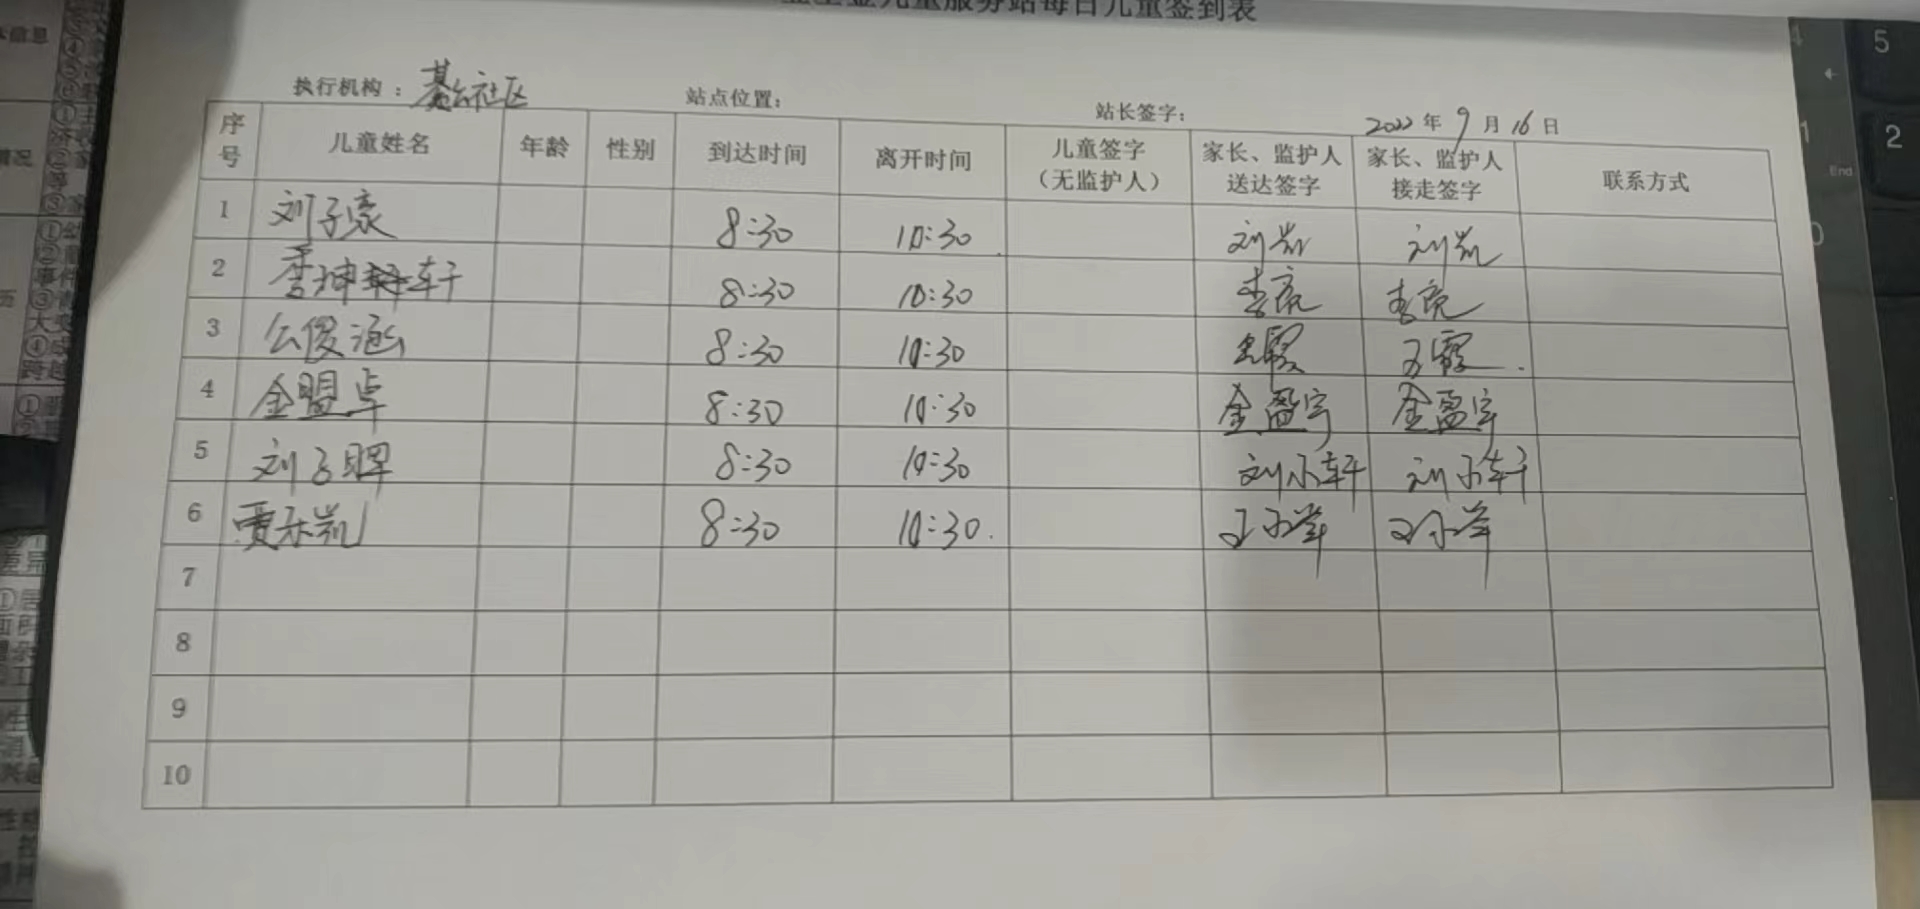 儿童服务站每日儿童签到表
执行机构： 社区 站点位置： 站长签字： 2022年9月16日
序号 儿童姓名 年龄 性别 到达时间 离开时间 儿童签字（无监护人） 家长、监护人送达签字 家长、监护人接走签字 联系方式
1 刘子豪 8:30 10:30 刘凯 刘凯
2 李坤轩 8:30 10:30 李亮 李亮
3 公俊涵 8:30 10:30 王霞 王霞
4 金盟卓 8:30 10:30 金盈宇 金盈宇
5 刘子晖 8:30 10:30 刘小轩 刘小轩
6 贾禾凯 8:30 10:30
7
8
9
10
5
2
End